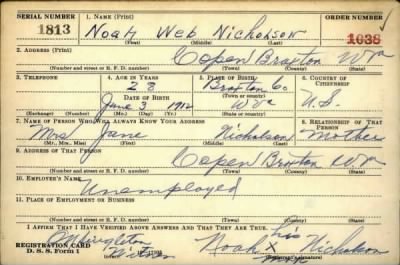 SERIAL NUMBER 1. NAME (Print) ORDER NUMBER
1813 Noah Web Nicholson 1038
(First) (Middle) (Last)
2. ADDRESS (Print)
Copen Braxton W Va
(Number and street or R. F. D. number) (Town) (County) (State)
3. TELEPHONE 4. AGE IN YEARS 5. PLACE OF BIRTH 6. COUNTRY OF CITIZENSHIP
28 Braxton Co.
DATE OF BIRTH (Town or county)
June 3 1912 W Va U.S.
(Exchange) (Number) (Mo.) (Day) (Yr.) (State or country)
7. NAME OF PERSON WHO WILL ALWAYS KNOW YOUR ADDRESS 8. RELATIONSHIP OF THAT PERSON
Mrs Jane Nicholson Mother
(Mr., Mrs., Miss) (First) (Middle) (Last)
9. ADDRESS OF THAT PERSON
Copen Braxton W Va
(Number and street or R. F. D. number) (Town) (County) (State)
10. EMPLOYER'S NAME
Unemployed
11. PLACE OF EMPLOYMENT OR BUSINESS
(Number and street or R. F. D. number) (Town) (County) (State)
I AFFIRM THAT I HAVE VERIFIED ABOVE ANSWERS AND THAT THEY ARE TRUE.
his
Noah X Nicholson
REGISTRATION CARD
D. S. S. Form 1 mark